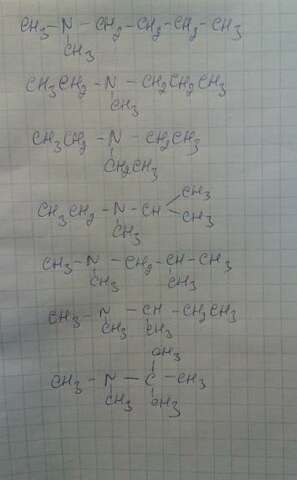 CH3-N-CH2-CH2-CH2-CH3
CH3
CH3CH2-N-CH2CH2CH3
CH3
CH3CH2-N-CH2CH3
CH2CH3
CH3
CH3CH2-N-CH
CH3
CH3
CH3-N-CH2-CH-CH3
CH3 CH3
CH3-N-CH-CH2CH3
CH3 CH3
CH3
CH3-N-C-CH3
CH3 CH3